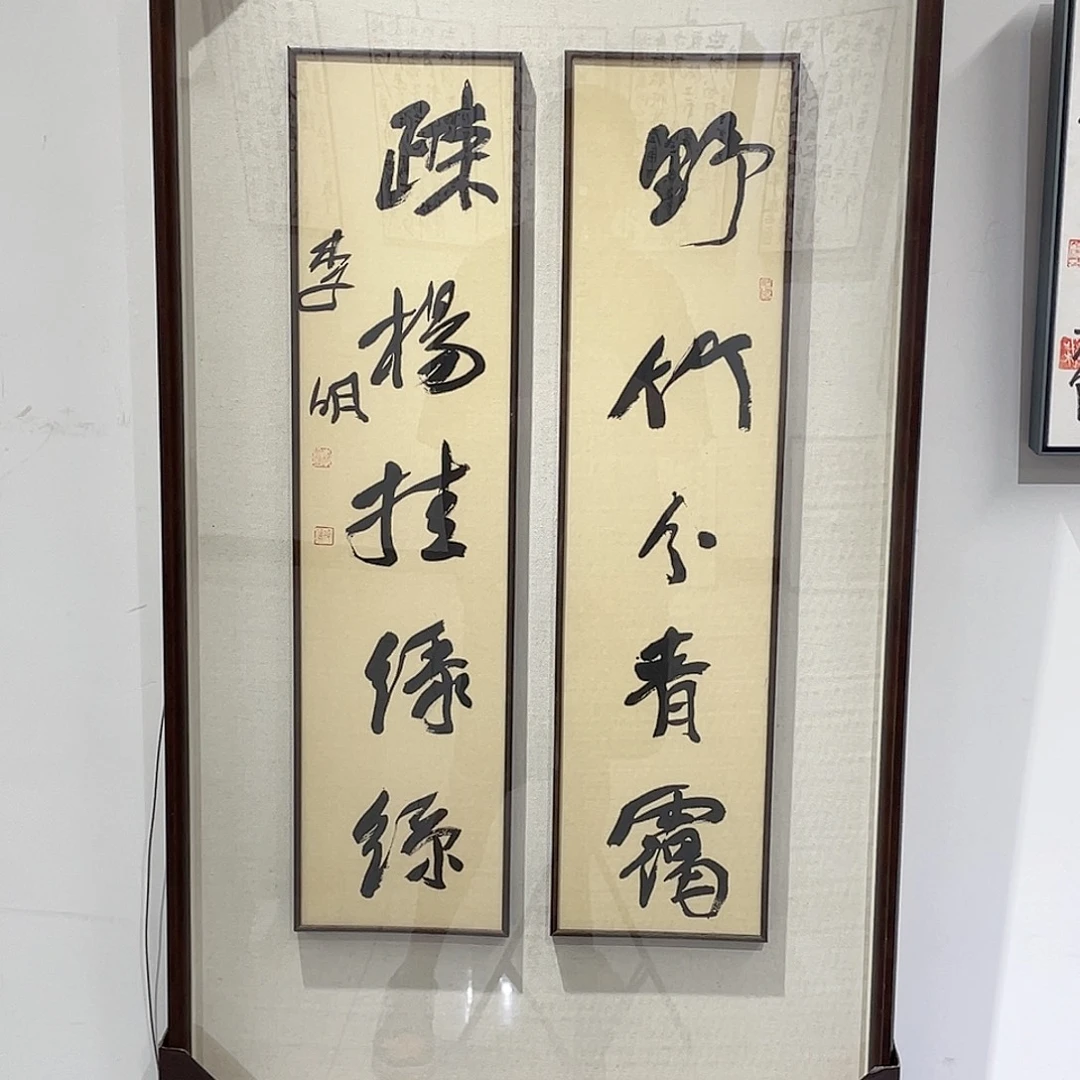 野竹分青靄
疎楊挂綠絲
李明